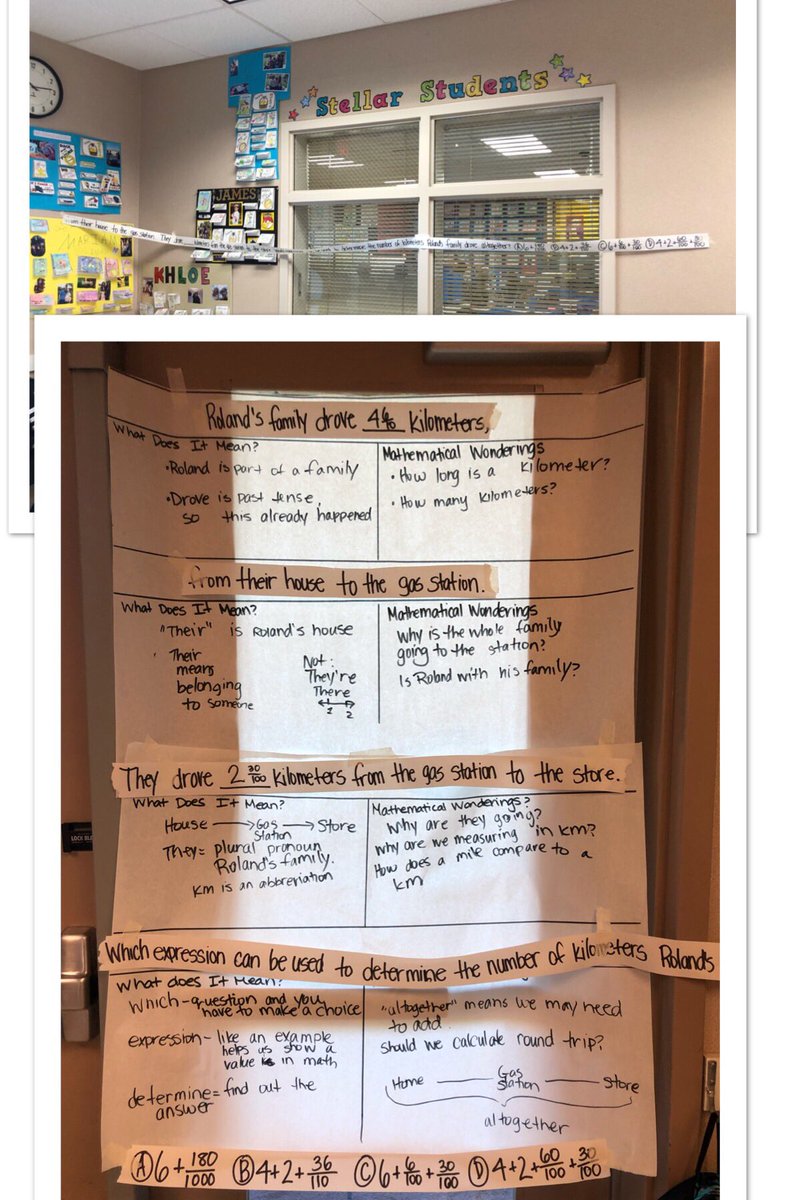 Stellar Students
JAMES
KHLOE
from their house to the gas station. They
determine the number of kilometers Roland's family drove altogether?
Roland's family drove kilometers,
What Does It Mean?
• Roland is part of a family
• Drove is past tense,
so this already happened
Mathematical Wonderings
• How long is a kilometer?
• How many kilometers?
from their house to the gas station.
What Does It Mean?
"Their" is Roland's house
Their
means
belonging
to someone
Not:
They're
There
1 2
Mathematical Wonderings
Why is the whole family
going to the station?
Is Roland with his family?
They drove 2 30/100 kilometers from the gas station to the store.
What Does It Mean?
House → Gas Station → Store
They = plural pronoun
Roland's family.
KM is an abbreviation
Mathematical Wonderings?
Why are they going?
Why are we measuring in km?
How does a mile compare to a
km
Which expression can be used to determine the number of kilometers Roland's
What does It Mean?
Which - question and you
have to make a choice
expression - like an example
helps us show a
value is in math
determine = find out the
answer
"altogether" means we may need
to add.
Should we calculate round trip?
Home Gas Station Store
altogether
Ⓐ 6 + 180/1000 Ⓑ 4 + 2 + 36/110 Ⓒ 6 + 6/100 + 30/100 Ⓓ 4 + 2 + 60/100 + 30/100